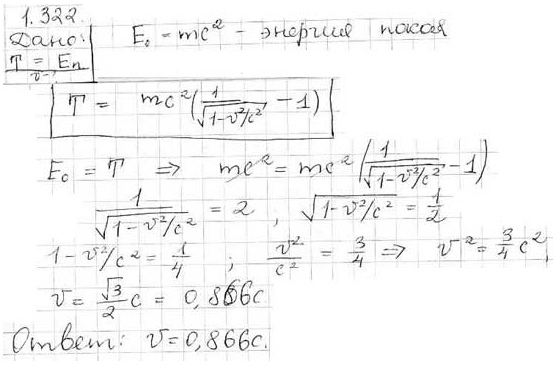 1.322.
Дано: E₀ = mc² - энергия покоя
T = Eп
v-
T = mc²(1/√(1-v²/c²) - 1)
E₀ = T ⇒ mc² = mc²(1/√(1-v²/c²) - 1)
1/√(1-v²/c²) = 2, √(1-v²/c²) = 1/2
1-v²/c² = 1/4 ; v²/c² = 3/4 ⇒ v² = 3/4 c²,
v = √3/2 c = 0,866c
Ответ: v=0,866c.